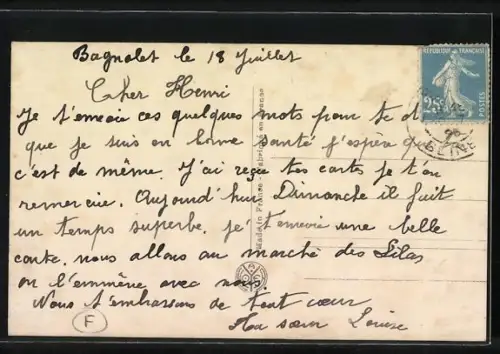 Bagnolet le 18 Juillet
Cher Henri
Je t'envoie ces quelques mots pour te d
que je suis en bonne santé j'espère que
c'est de même. J'ai reçue tes cartes je t'en
remercie. Aujourd'hui Dimanche il fait
un temps superbe. je t'envoie une belle
carte, nous allons au marché des Lilas
on l'emmène avec nous.
Nous t'embrassons de tout cœur
Ta sœur Louise
F
REPUBLIQUE FRANÇAISE
25c
POSTES
SEINE
Made in France - Fabriqué en France